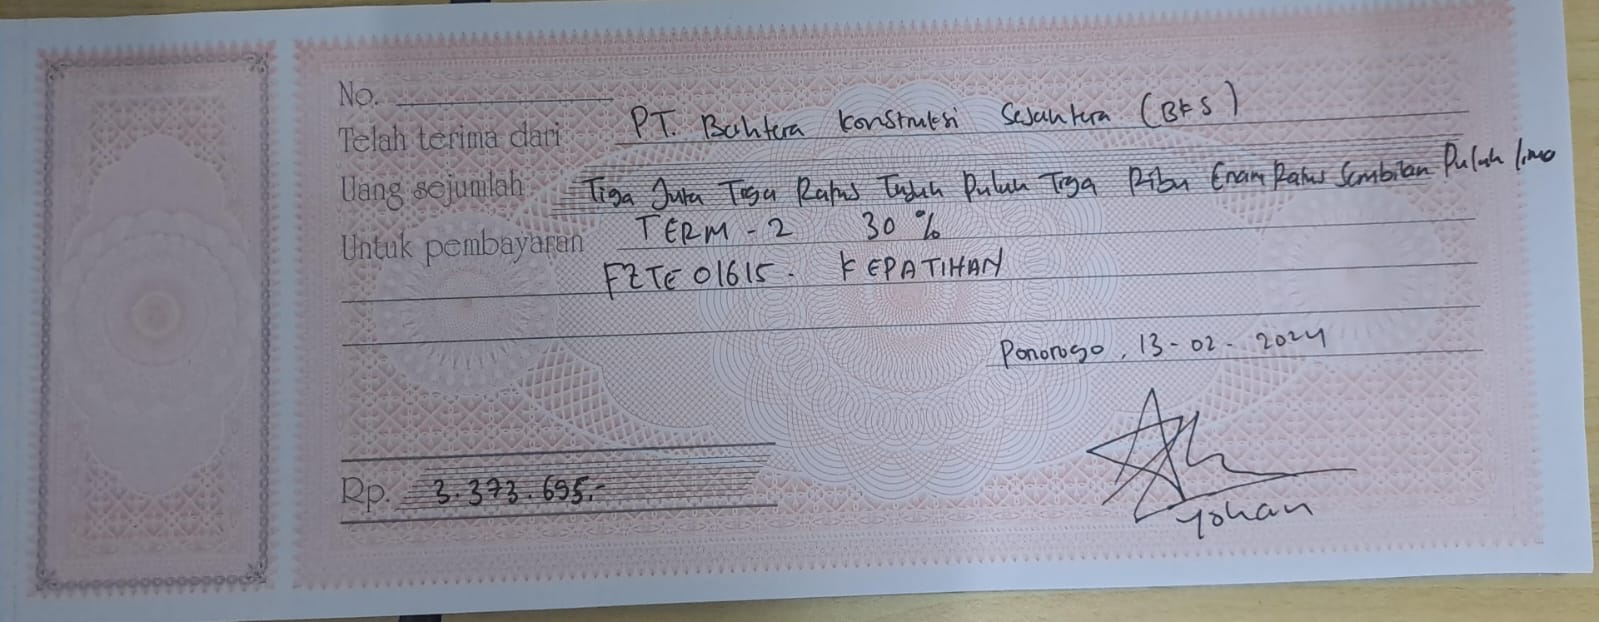 No.
Telah terima dari PT. Bahtera Konstruksi Sejahtera (BKS)
Uang sejumlah Tiga Juta Tiga Ratus Tujuh Puluh Tiga Ribu Enam Ratus Sembilan Puluh lima
Untuk pembayaran TERM - 2 30 %
FZTE 01615 - KEPATIHAN
Ponorogo, 13 - 02 - 2024
Rp. 3.373.695,-
Yohan